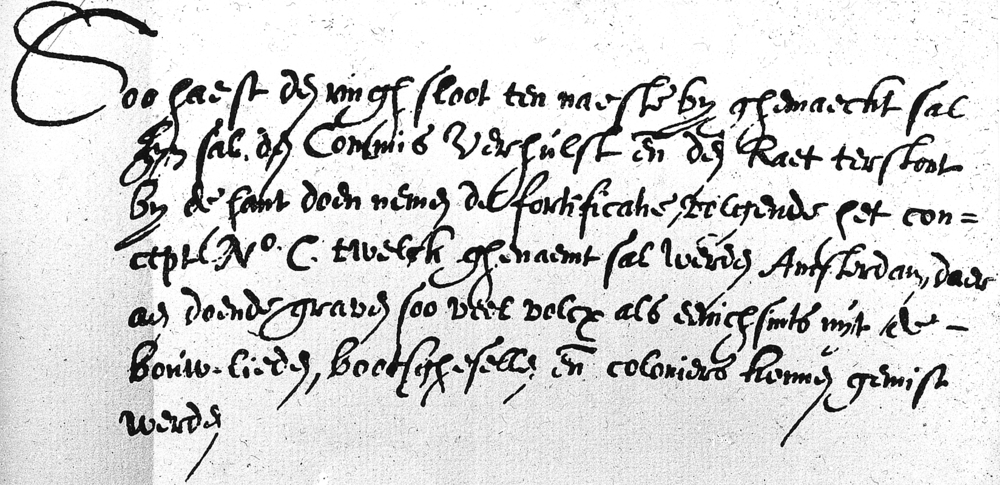 Soo haest den ringh sloot ten naesten by ghemaeckt sal
syn sal den Commis Verhulst en̄ den Raet terstont
by de hant doen nemen de fortificatie, volgende het con=
cept No. C. twelck ghenaemt sal werden Amsterdam, daer
aen doende graven soo veel volcx als eenichsints uijt de –
bouw-lieden, bootsghesellen en̄ coloniers kennen gemist
werden